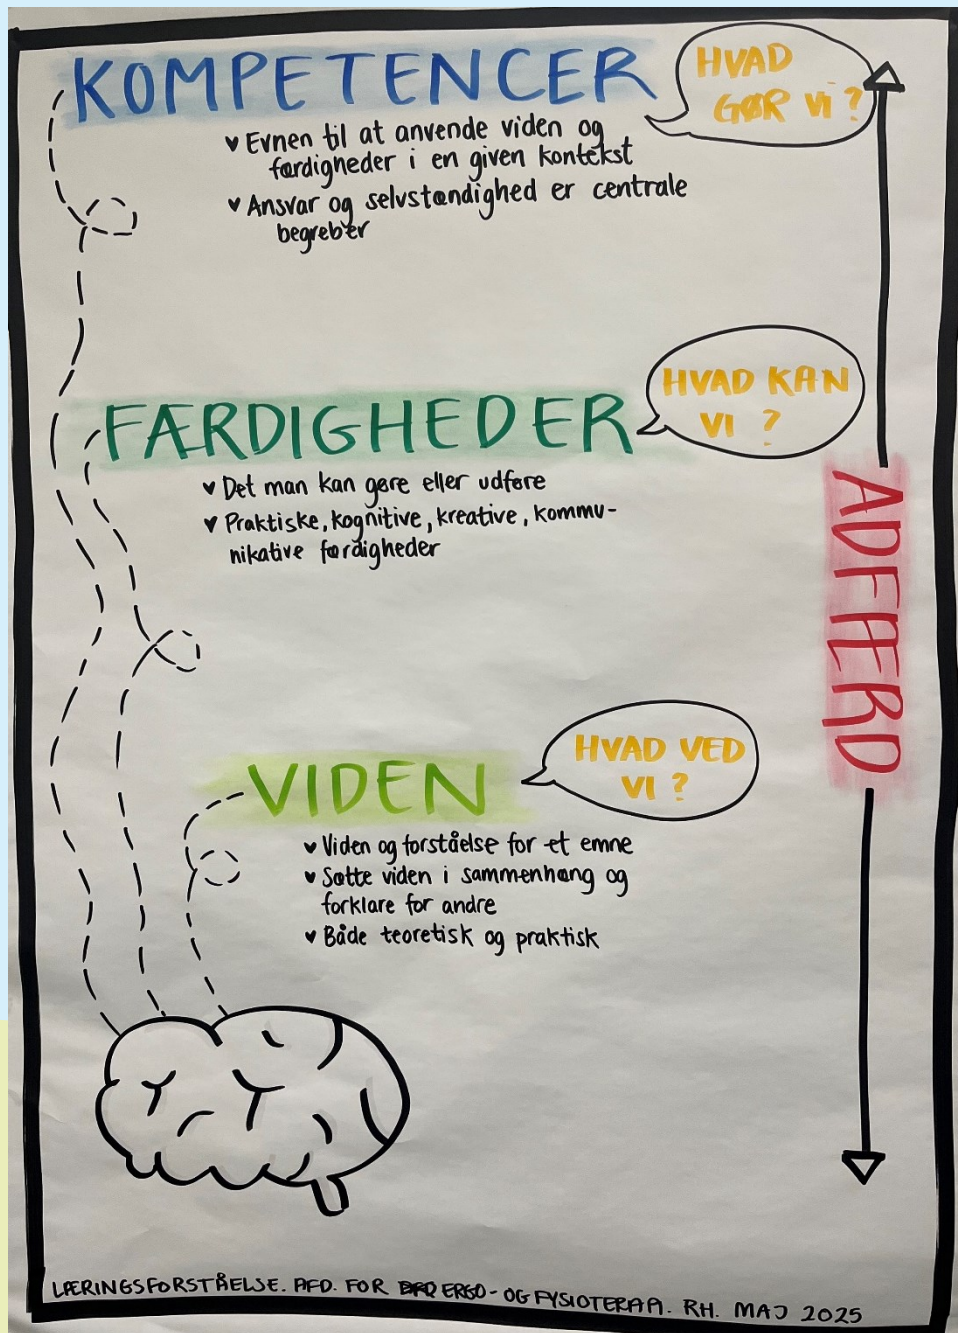 KOMPETENCER
HVAD
GØR Vi ?
♥ Evnen til at anvende viden og
færdigheder i en given kontekst
♥ Ansvar og selvstændighed er centrale
begreber
FÆRDIGHEDER
HVAD KAN
VI ?
♥ Det man kan gøre eller udføre
♥ Praktiske, kognitive, kreative, kommu-
nikative færdigheder
ADFÆRD
VIDEN
HVAD VED
VI ?
♥ Viden og forståelse for et emne
♥ Sætte viden i sammenhæng og
forklare for andre
♥ Både teoretisk og praktisk
LÆRINGSFORSTÅELSE. AFD. FOR ERGO- OG FYSIOTERAPI. RH. MAJ 2025